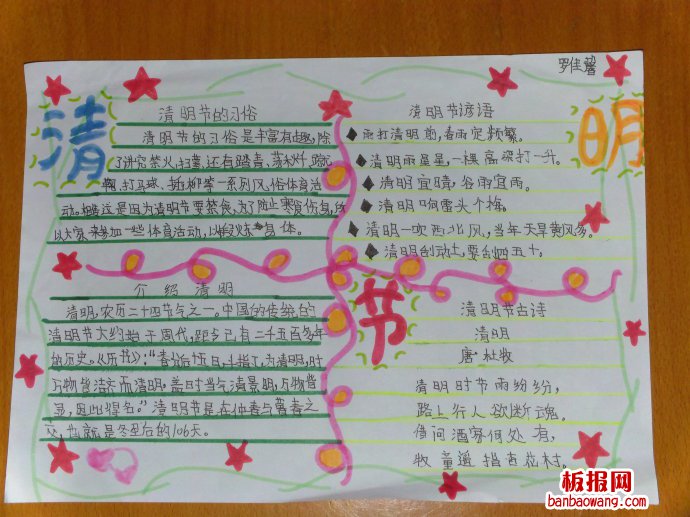 罗佳馨
清
清明节的习俗
清明节的习俗是丰富有趣,除
了讲究禁火、扫墓,还有踏青、荡秋千、蹴
鞠、打马球、插柳等一系列风俗体育活
动。相传这是因为清明节要禁食,为了防止寒食伤身,所
以大家来参加一些体育活动,以锻炼身体。
清明节谚语
明
雨打清明前,春雨定频繁。
清明雨星星,一棵高粱打一升。
清明宜晴,谷雨宜雨。
清明响雷头个梅。
清明一吹西北风,当年天旱黄风多。
清明刮动土,要刮四五十。
介绍清明
清明,农历二十四节气之一。中国的传统的
清明节大约始于周代,距今已有二千五百多年
的历史。《历书》:“春分后十五日,斗指丁,为清明,时
万物皆洁齐而清明。盖时当气清景明,万物皆
显,因此得名。”清明节是在仲春与暮春之
交,也就是冬至后的106天。
节
清明节古诗
清明
唐 杜牧
清明时节雨纷纷,
路上行人欲断魂。
借问酒家何处有,
牧童遥指杏花村。
板报网
banbaowang.com